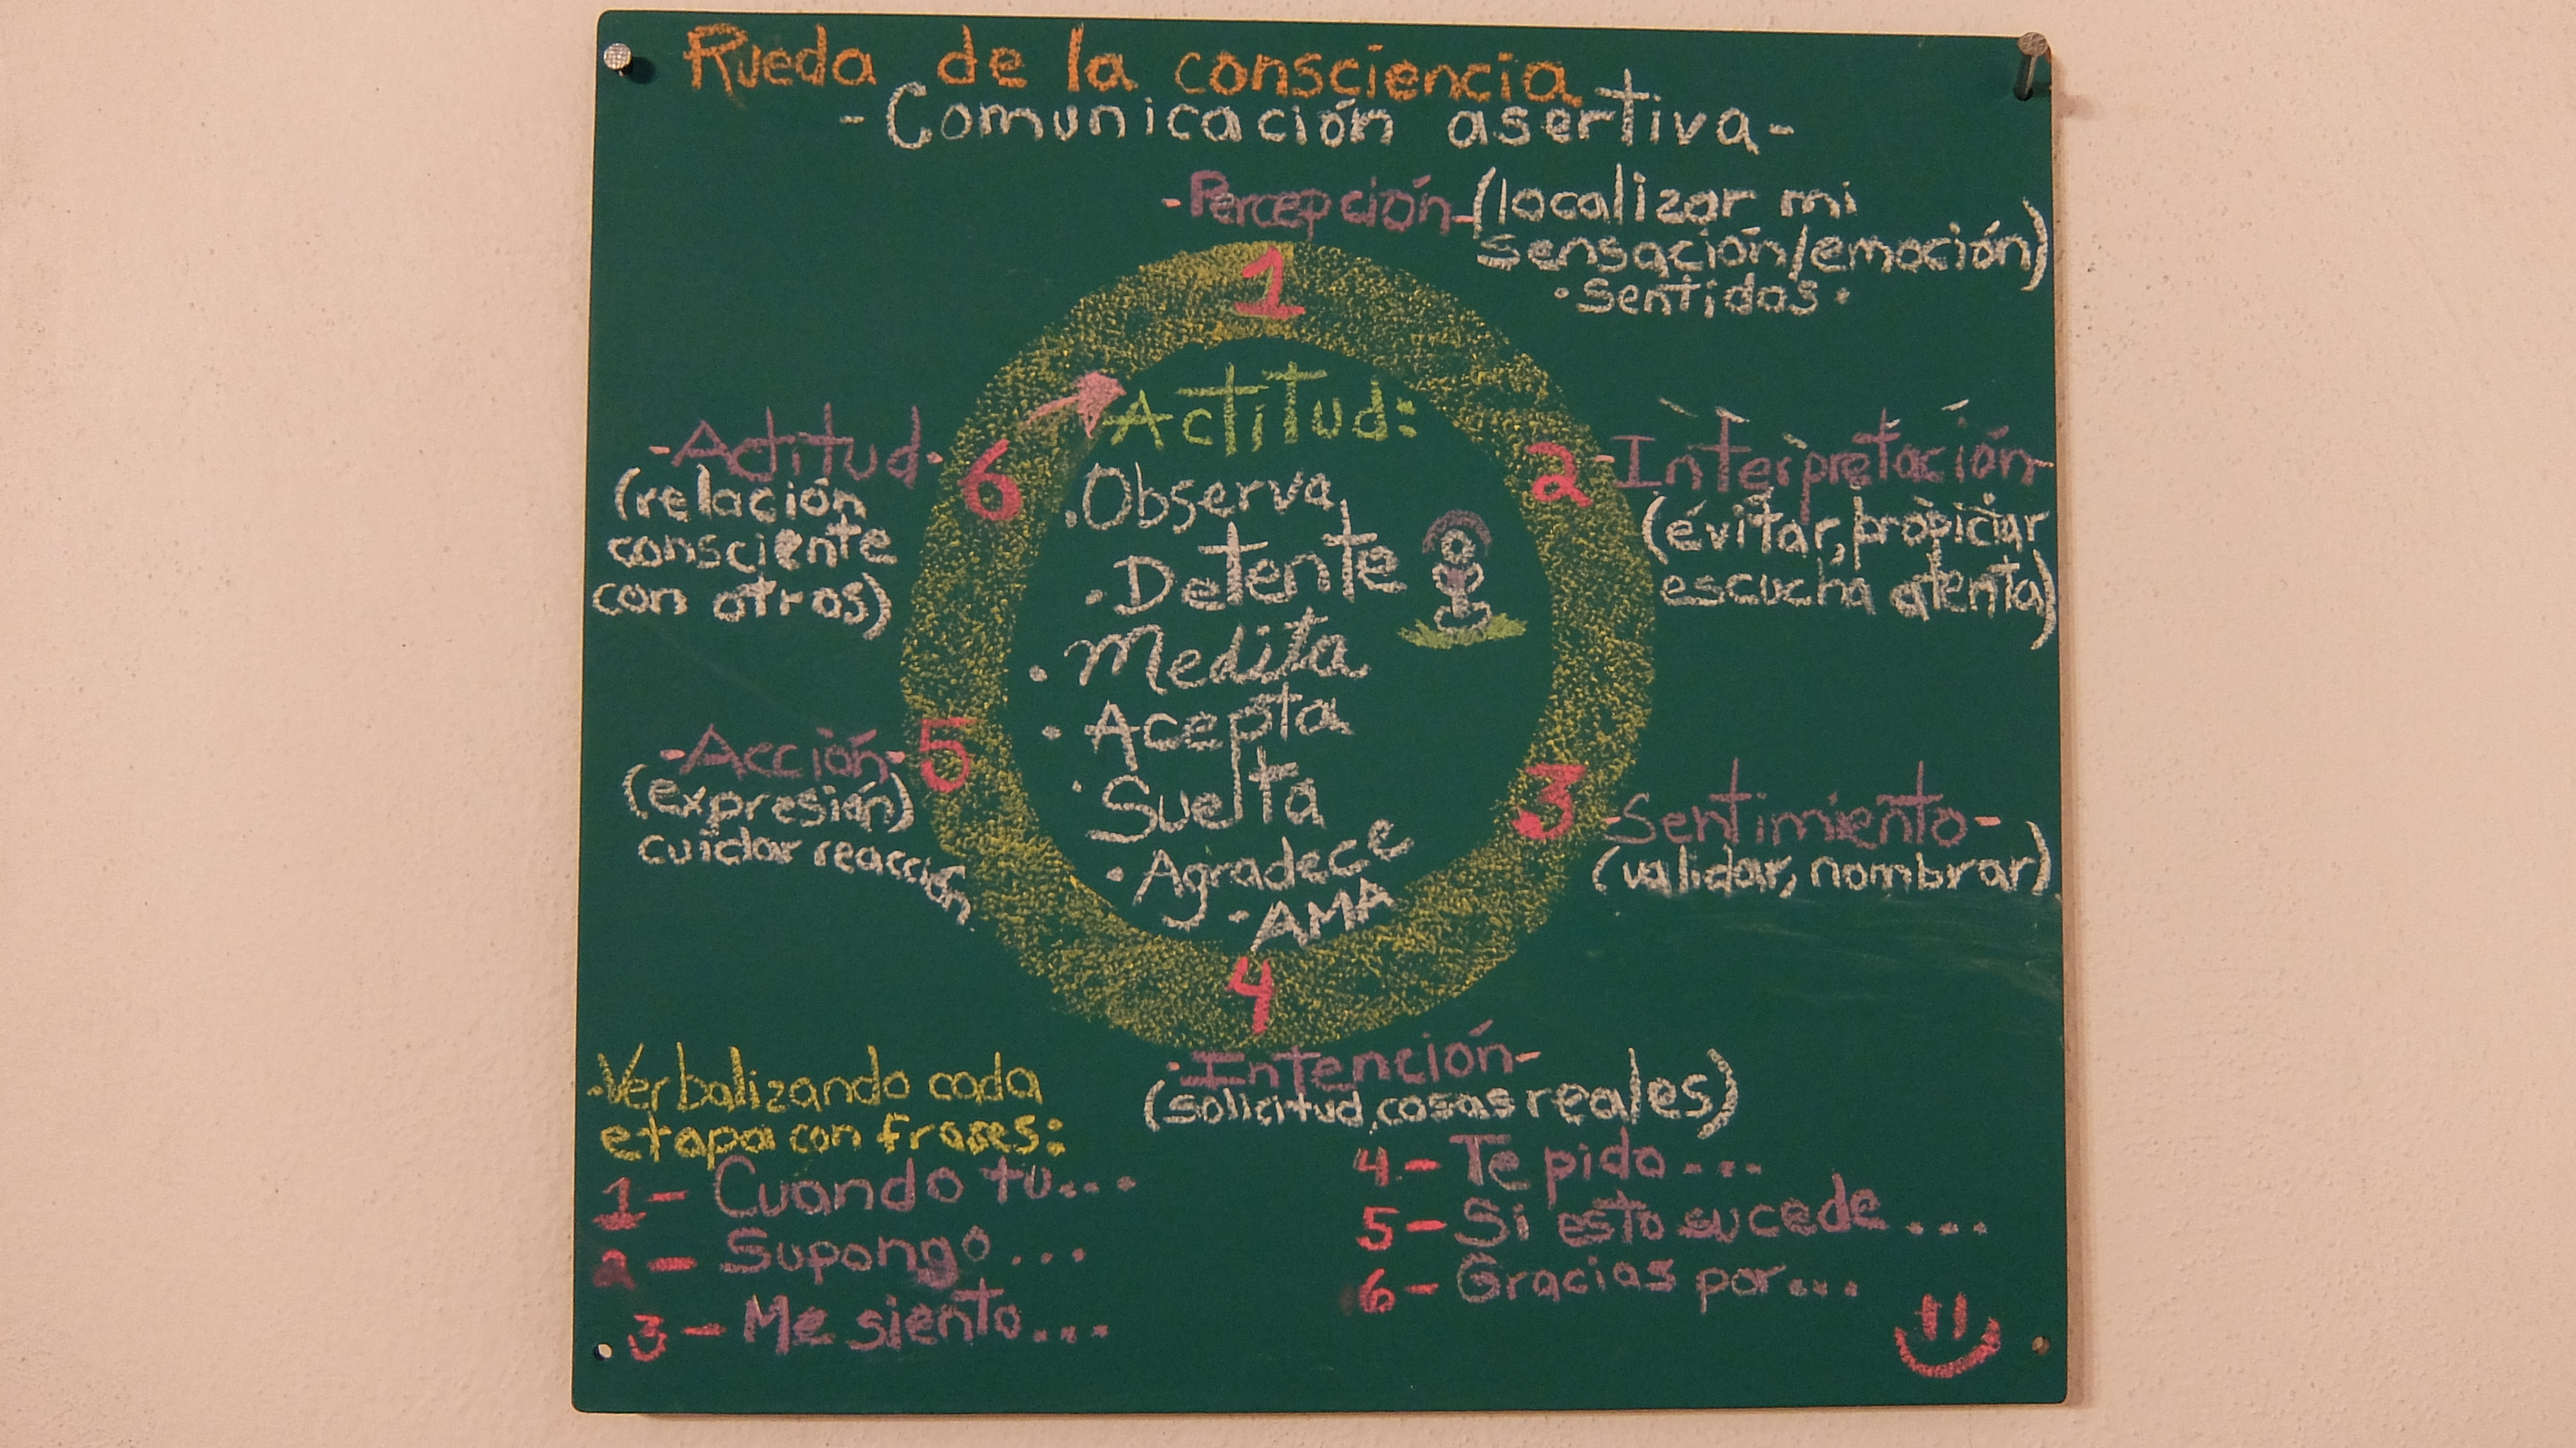 Rueda de la consciencia
-Comunicación asertiva-
-Percepción-(localizar mi
sensación/emoción)
·Sentidos·
1
2-Interpretación-
(évitar, propiciar
escucha atenta)
3-Sentimiento-
(validar, nombrar)
4
·Intención-
(solicitud, cosas reales)
-Acción-5
(expresión)
cuidar reacción
-Actitud-6
(relación
consciente
con otros)
Actitud:
·Observa
·Detente
·Medita
·Acepta
·Suelta
·Agradece
-AMA
·Verbalizando cada
etapa con frases:
1- Cuando tu...
2- Supongo...
3- Me siento...
4- Te pido...
5- Si esto sucede...
6- Gracias por...